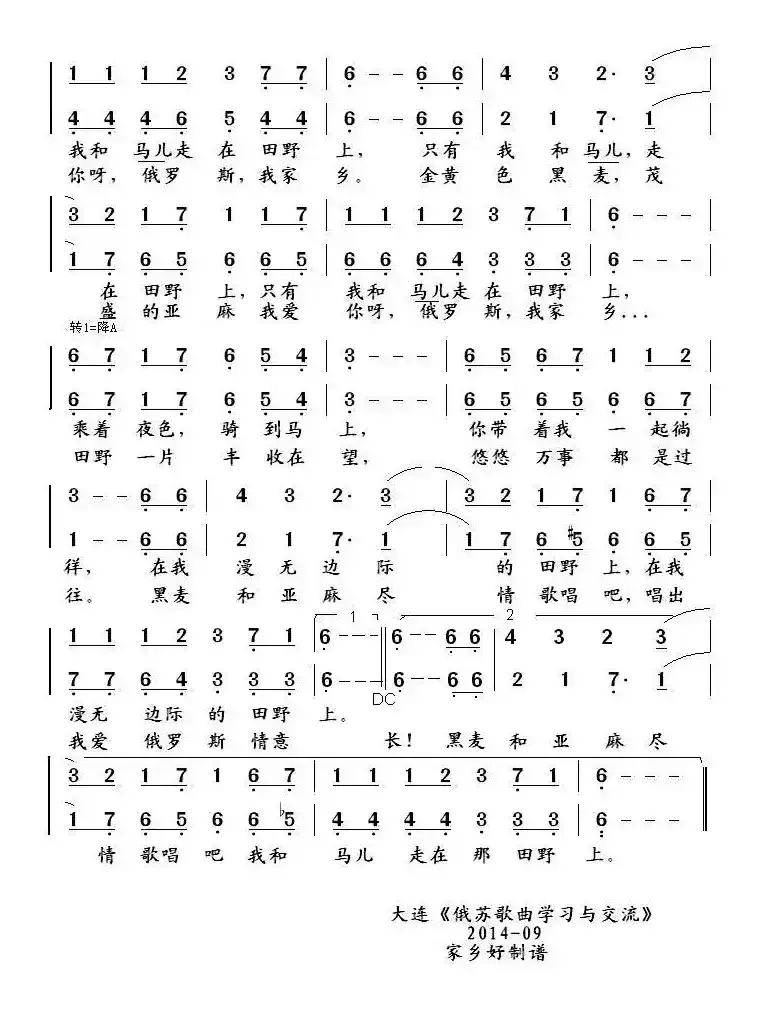 1 1 1 2 3 7 7 | 6 - - 6 6 | 4 3 2· 3
4 4 4 6 5 4 4 | 6 - - 6 6 | 2 1 7· 1
我和 马儿走 在 田野 上， 只有 我 和 马儿，走
你呀，俄罗 斯，我家 乡。 金黄 色 黑 麦，茂
3 2 1 7 1 1 7 | 1 1 1 2 3 7 1 | 6 - - -
1 7 6 5 6 6 5 | 6 6 6 4 3 3 3 | 6 - - -
在 田野 上，只有 我和 马儿走 在 田野 上，
盛 的亚 麻 我爱 你呀，俄罗 斯，我家 乡...
转1=降A
6 7 1 7 6 5 4 | 3 - - - | 6 5 6 7 1 1 2
6 7 1 7 6 5 4 | 3 - - - | 6 5 6 5 6 6 7
乘着 夜色， 骑 到马 上， 你带 着我 一 起徜
田野 一片 丰 收在 望， 悠悠 万事 都 是过
3 - - 6 6 | 4 3 2· 3 | 3 2 1 7 1 6 7
1 - - 6 6 | 2 1 7· 1 | 1 7 6 #5 6 6 5
徉， 在我 漫 无 边 际 的 田野 上，在我
往。 黑麦 和 亚 麻 尽 情 歌唱 吧，唱出
1 2
1 1 1 2 3 7 1 | 6 - - - || 6 - 6 6 | 4 3 2 3
7 7 6 4 3 3 3 | 6 - - - || 6 - 6 6 | 2 1 7· 1
DC
漫无 边际 的 田野 上。
我爱 俄罗 斯 情意 长！ 黑麦 和 亚 麻 尽
3 2 1 7 1 6 7 | 1 1 1 2 3 7 1 | 6 - - - ||
1 7 6 5 6 6 b5 | 4 4 4 4 3 3 3 | 6 - - - ||
情 歌唱 吧 我和 马儿 走在 那 田野 上。
大连《俄苏歌曲学习与交流》
2014-09
家乡好制谱